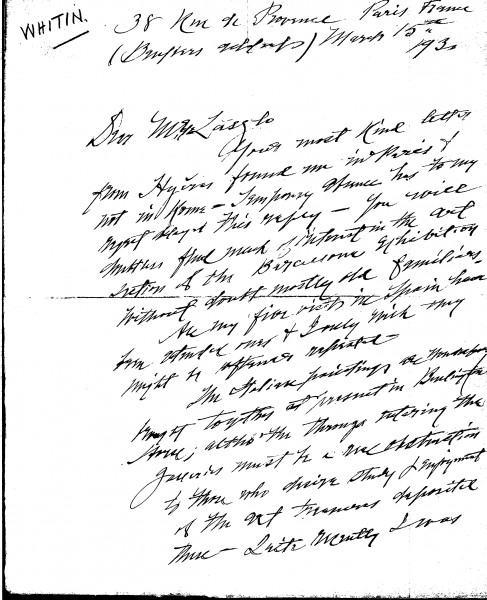 WHITIN.
38 Rue de Provence Paris France
(Bankers address) March 15th
1930
Dear Mr. László
Your most kind letter
from Hyères found me in Paris &
not in Rome - Temporary absence has to my
regret delayed this reply - You will
doubtless find much of interest in the art
section of the Barcelona Exhibition
without doubt mostly old familiars.
All my five visits in Spain have
been ones & I only wish they
might be oftener repeated -
The Italian paintings are
brought together at present in Burlington
House; altho' the throngs entering the
galleries must be a obstruction
to those who desire study & enjoyment
of the art treasures deposited
there - Quite recently I was